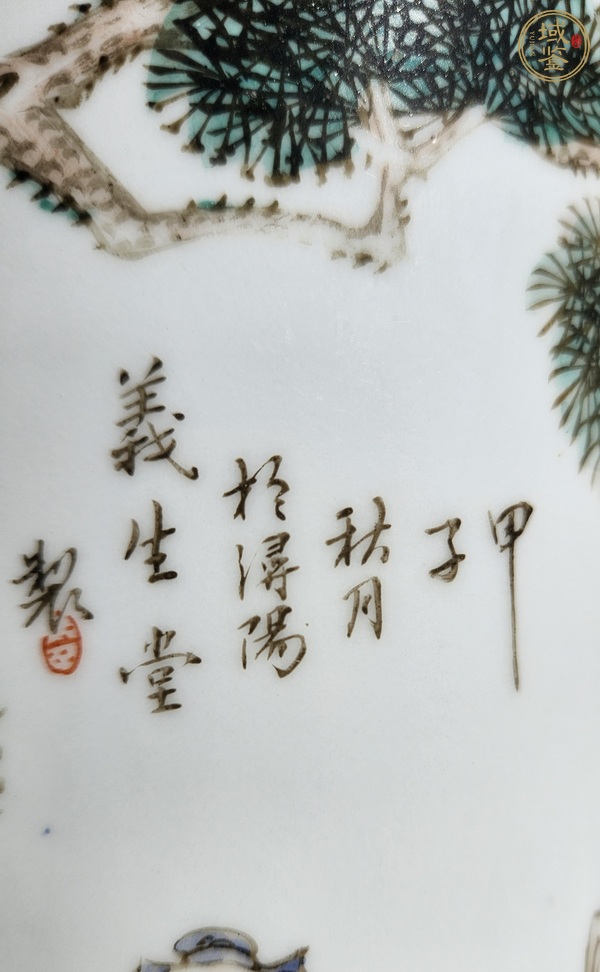 甲
子
秋月
於潯陽
義生堂
製
域鉴